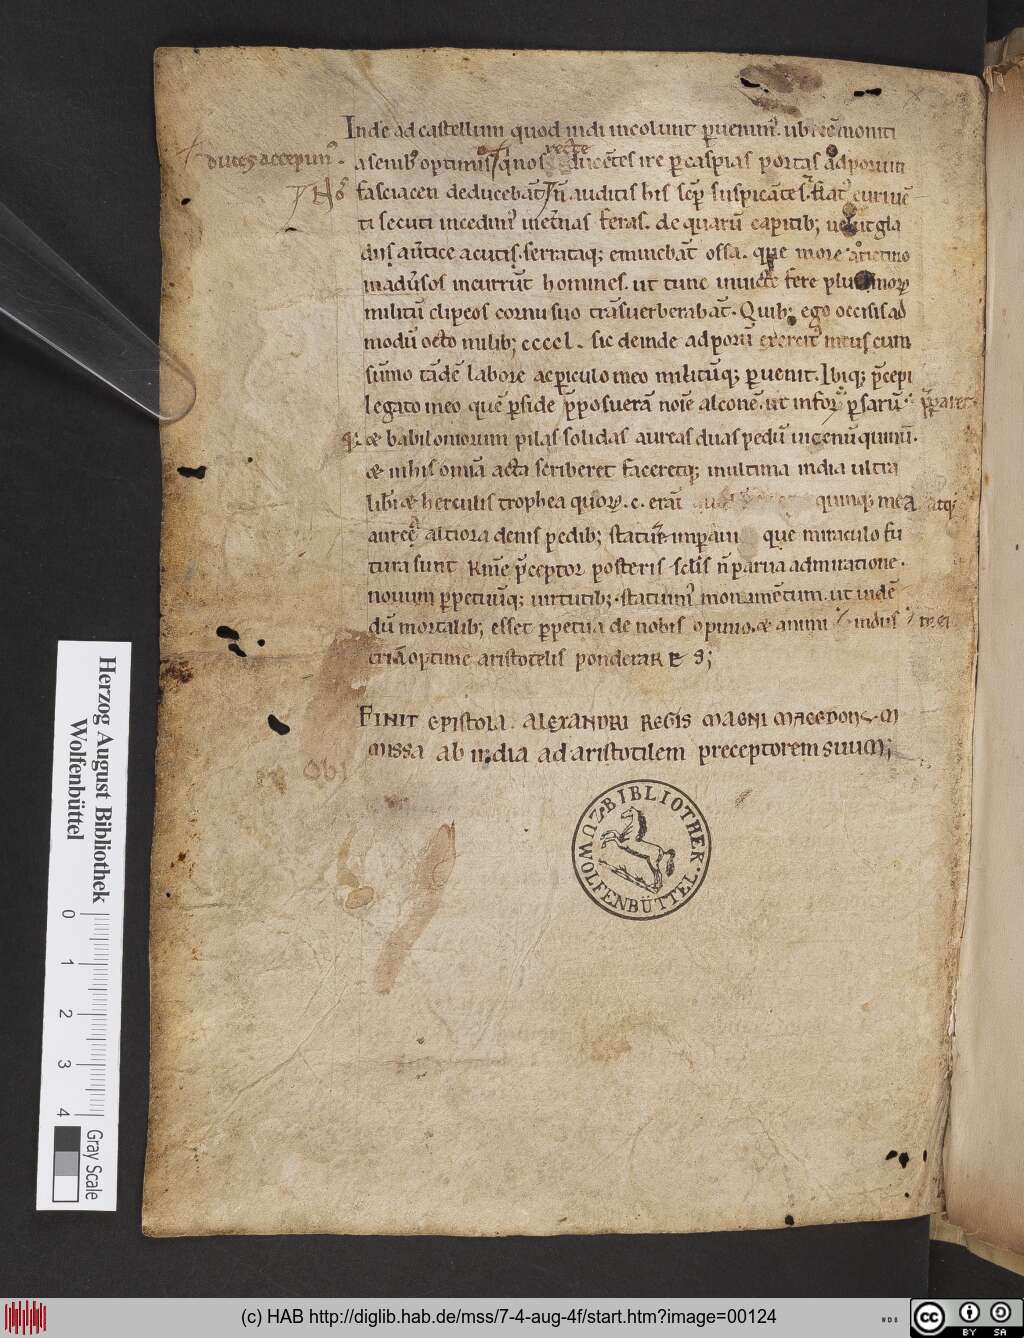 Inde ad castellum quod indi incolunt ꝑuenim᷒. ubi moniti
duces accepim᷒.
a senib᷒ optimis quos recte ducentes ire ꝑ caspias portas ad porum
No᷒ fasiacen deducebāt. Iñ auditis his sēp suspicātes
ti secuti incedim᷒ inētnas feras. de quarū capitib; uelut gla
diis āutice acutis. serratiq; eminebāt ossa. que more arietino
inad᷒sos incurrūt homines. ut tunc inuecte fere plurimoꝝ
militū clipeos cornu suo trāsuerberabāt. Quib; ego occisis ad
modū octo milib; cccc l. sic deinde ad porū exercit᷒ meus cum
sūmo tādē labore ac ꝑiculo meo militūq; ꝑuenit. Ibiq; p̄cepi
legato meo quē ꝑside p̄posuerā noīe alconē. ut in foꝝ ꝑsarū p̄pararet
& babiloniorum pilas solidas aureas duas pedū uicenū quinū.
& in his omīa acta scriberet faceretq; in ultima india ultra
libī & herculis trophea quoꝝ .c. erāt quinq; mea atq;
aurea altiora denis pedib; statuī imperaui que miraculo fu
tura sunt kīme p̄ceptor posteris sctis ñ parua admiratione.
nouum ꝑpetuūq; uirtutib; statuim᷒ monumētum. ut inuidē
dū mortalib; esset ꝑpetua de nobis opinio. & animi indus mei
triā optime aristotelis ponderaRE S;
FINIT EPISTOLA. ALEXANDRI REGIS MAGNI MACEDONV̄. M
MISSA AB INDIA AD ARISTOTILEM PRECEPTOREM SUUM;
obi
BIBLIOTHEK ZU WOLFENBÜTTEL.
Herzog August Bibliothek
Wolfenbüttel
0 1 2 3 4
Gray Scale
(c) HAB http://diglib.hab.de/mss/7-4-aug-4f/start.htm?image=00124
WDB
cc BY SA